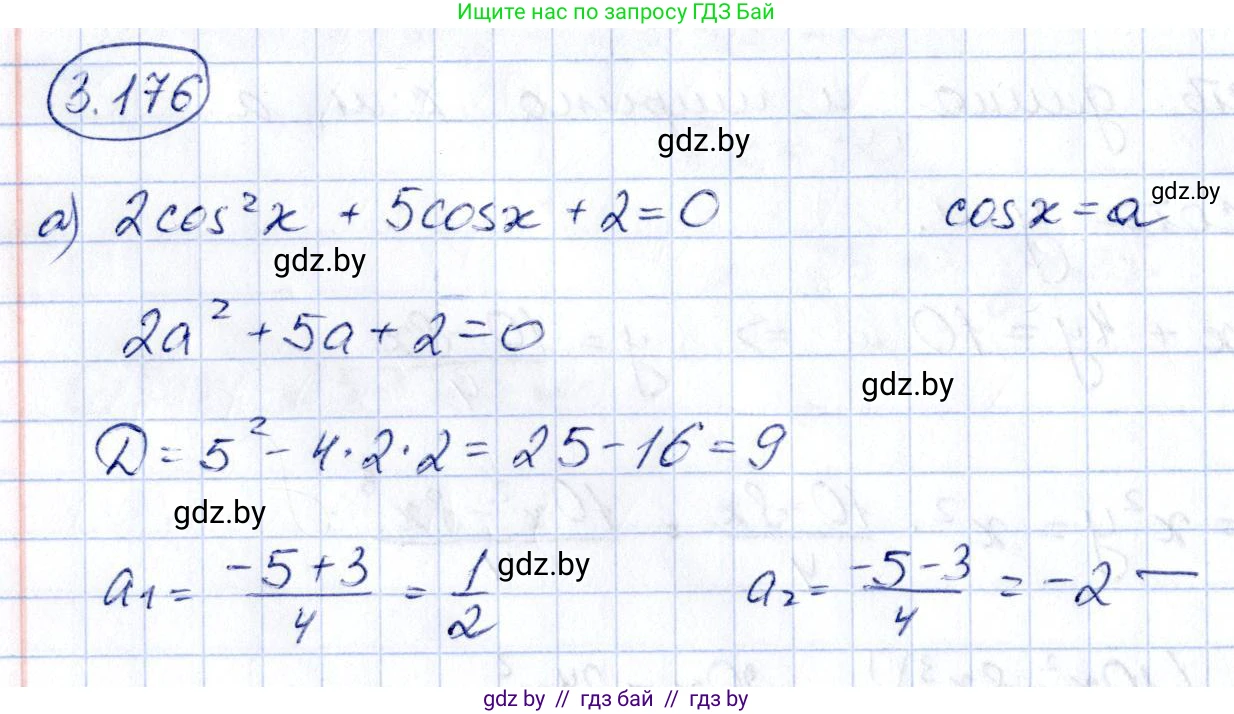 Ищите нас по запросу ГДЗ Бай
3.176
gdz.by
а) 2cos²x + 5cosx + 2 = 0 cosx = a gdz.by
gdz.by
2a² + 5a + 2 = 0
gdz.by
D = 5² - 4·2·2 = 25 - 16 = 9
gdz.by
a₁ = (-5+3)/4 = 1/2 gdz.by a₂ = (-5-3)/4 = -2 —
gdz.by // гдз бай // гдз by